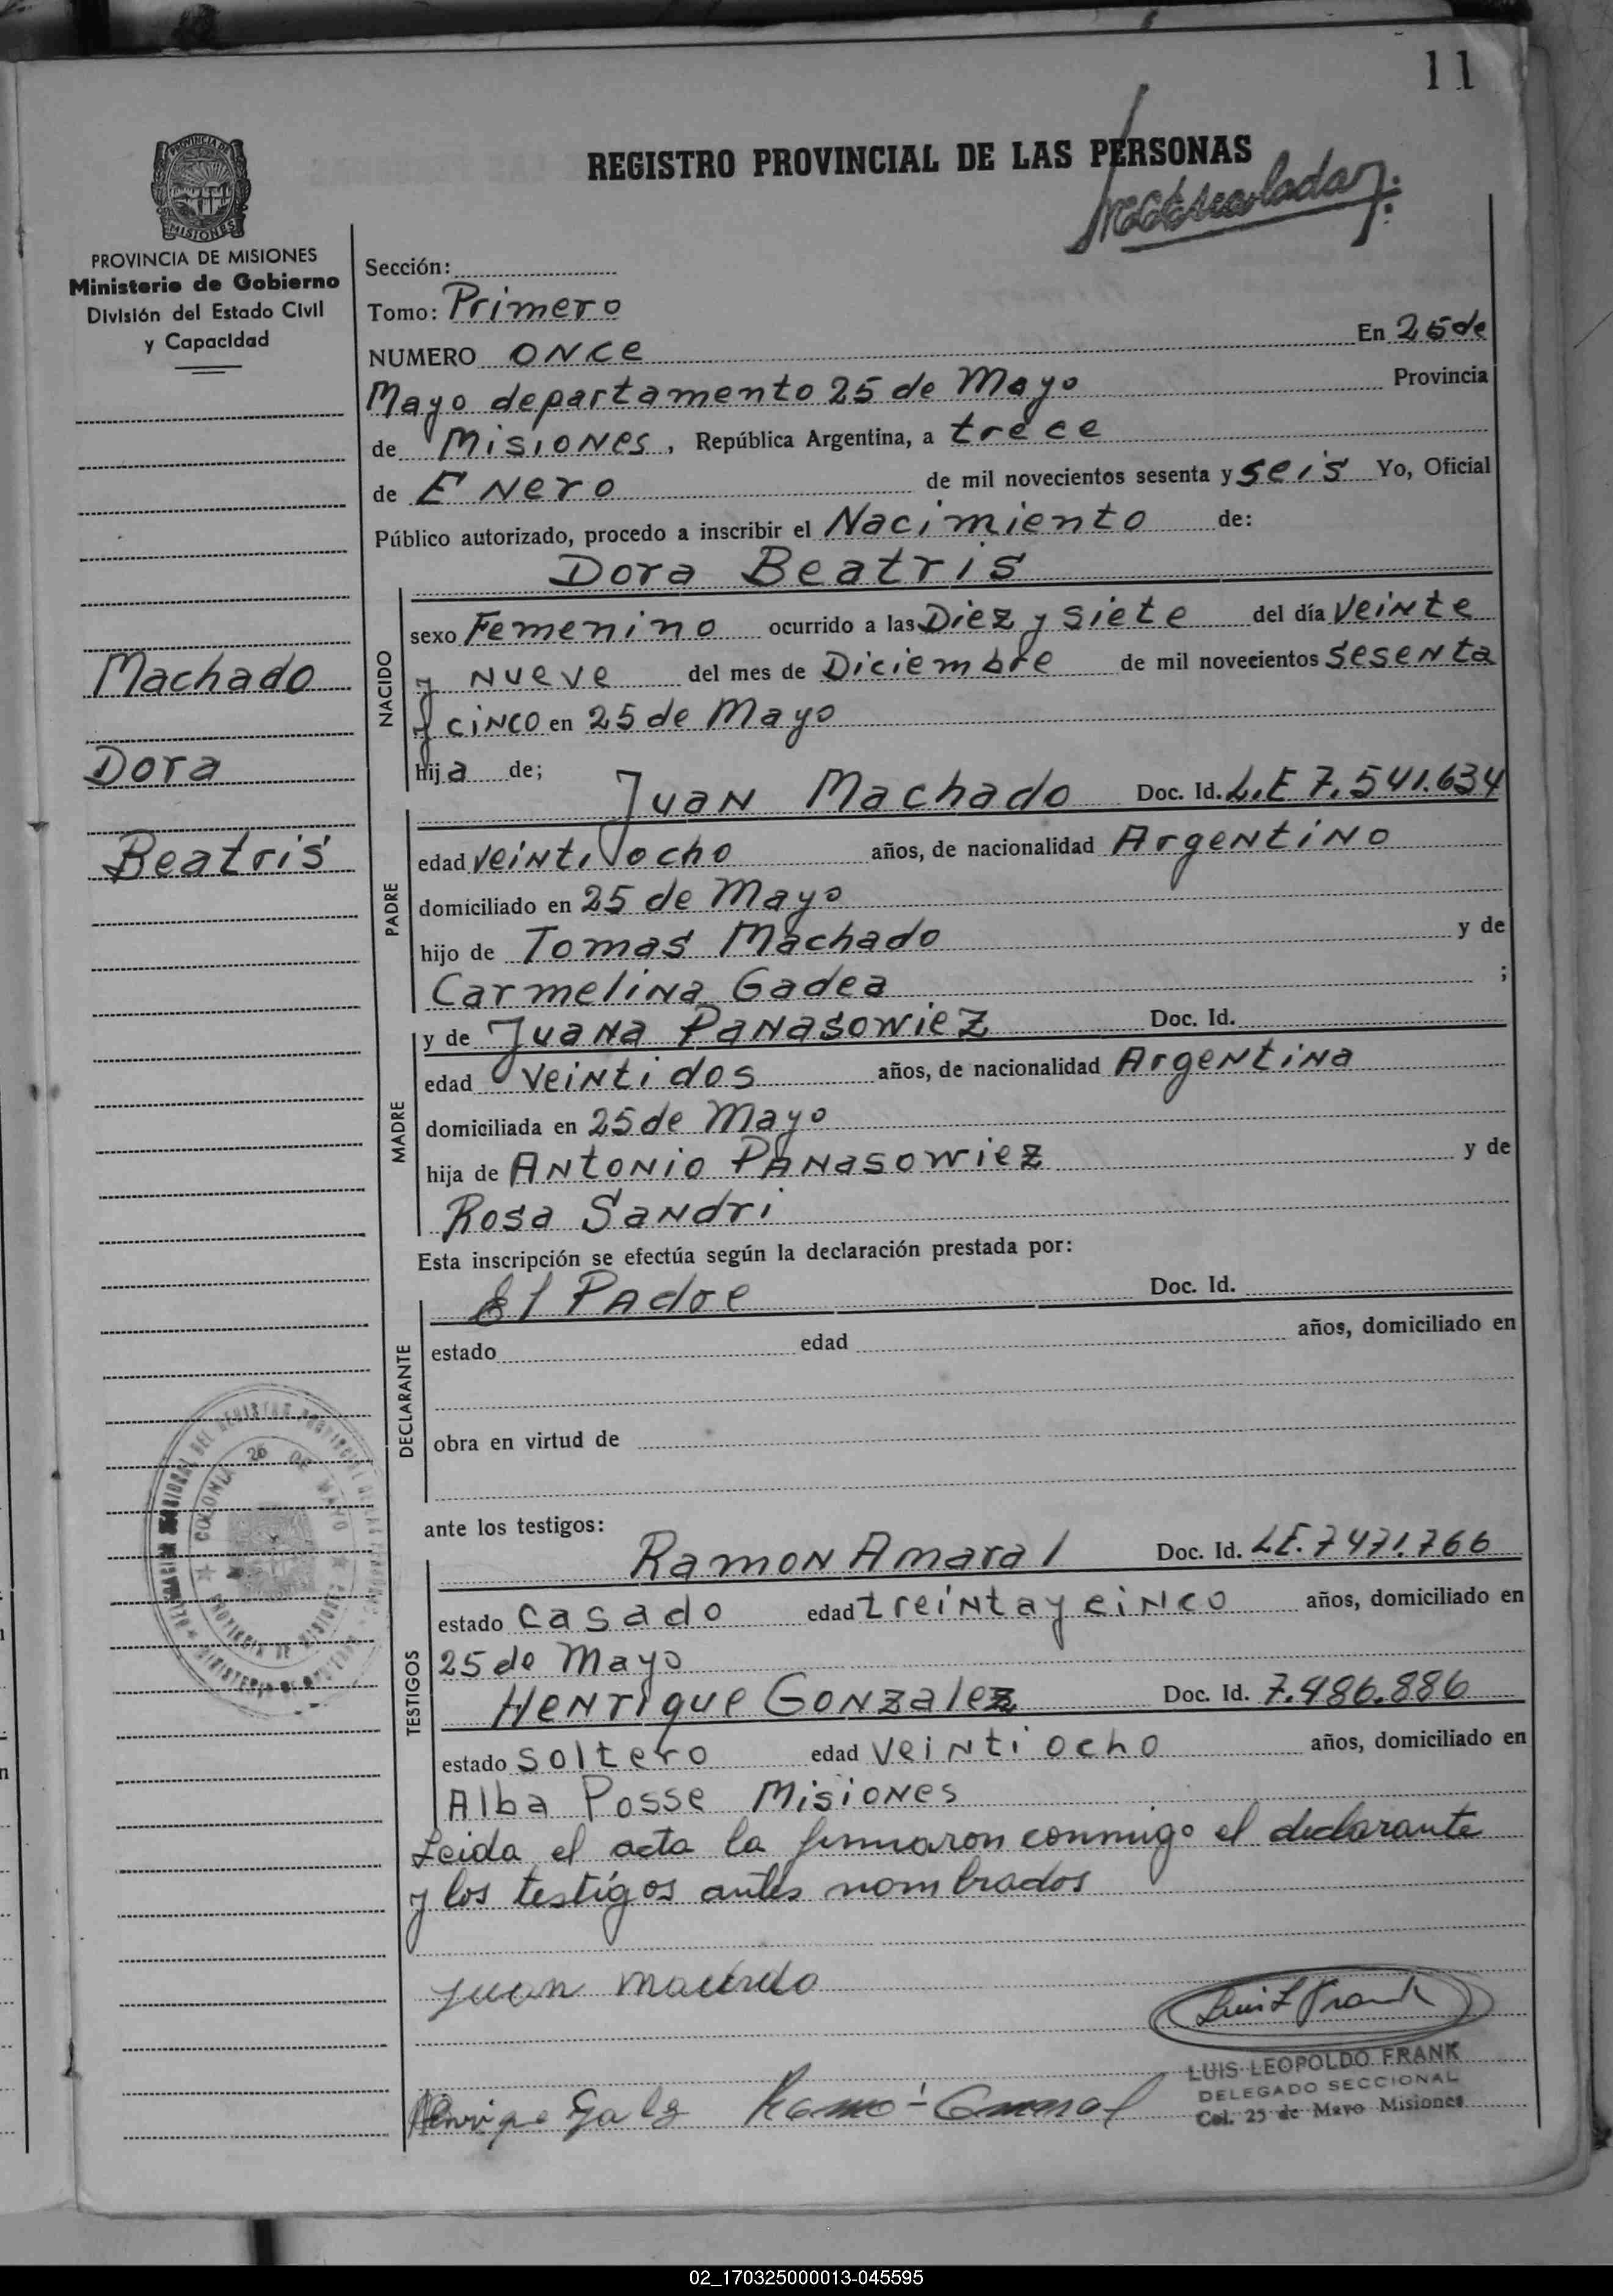 11
REGISTRO PROVINCIAL DE LAS PERSONAS
PROVINCIA DE MISIONES
PROVINCIA DE MISIONES
Ministerio de Gobierno
División del Estado Civil
y Capacidad
Machado
Dora
Beatris
Sección:
Tomo: Primero
NUMERO ONCE En 25 de
Mayo departamento 25 de Mayo Provincia
de Misiones, República Argentina, a trece
de Enero de mil novecientos sesenta y seis Yo, Oficial
Público autorizado, procedo a inscribir el Nacimiento de:
Dora Beatris
NACIDO
sexo Femenino ocurrido a las Diez y siete del día Veinte
y Nueve del mes de Diciembre de mil novecientos sesenta
y cinco en 25 de Mayo
hija de;
PADRE
Juan Machado Doc. Id. L.E 7.541.634
edad Veinti ocho años, de nacionalidad Argentino
domiciliado en 25 de Mayo
hijo de Tomas Machado y de
Carmelina Gadea ;
MADRE
y de Juana Panasowiez Doc. Id.
edad Veinti dos años, de nacionalidad Argentina
domiciliada en 25 de Mayo
hija de Antonio Panasowiez y de
Rosa Sandri
Esta inscripción se efectúa según la declaración prestada por:
DECLARANTE
El Padre Doc. Id.
estado edad años, domiciliado en
obra en virtud de
ante los testigos:
TESTIGOS
Ramon Amaral Doc. Id. LE. 7471.766
estado casado edad treinta y cinco años, domiciliado en
25 de Mayo
Henrique Gonzalez Doc. Id. 7.486.886
estado soltero edad Veinti ocho años, domiciliado en
Alba Posse Misiones
Leida el acta la firmaron conmigo el declarante
y los testigos antes nombrados
COLONIA 25 DE MAYO
PROVINCIA DE MISIONES
Juan Machado
Luis L Frank
LUIS LEOPOLDO FRANK
DELEGADO SECCIONAL
Col. 25 de Mayo Misiones
02_170325000013-045595